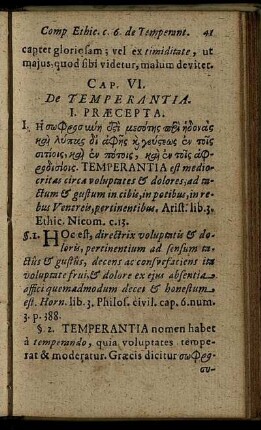 Comp Ethic. c. 6. de Temperant. 41
captet gloriosam; vel ex timiditate, ut
majus, quod sibi videtur, malum devitet.
CAP. VI.
De TEMPERANTIA.
I. PRÆCEPTA.
I. Η σωφροσύνη ἐστὶ μεσότης περὶ ἡδονὰς
καὶ λύπας δι' ἁφῆς καὶ γεύσεως ἐν τοῖς
σιτίοις, καὶ ἐν ποτοῖς, καὶ ἐν τοῖς ἀφ-
ροδισίοις. TEMPERANTIA est medio-
critas circa voluptates & dolores, ad ta-
ctum & gustum in cibis, in potibus, in re-
bus Venereis, pertinentibus. Arist. lib. 3.
Ethic. Nicom. c. 13.
§. 1. HOc est, directrix voluptatis & do-
loris, pertinentium ad sensum ta-
ctûs & gustûs, decens ac consrefaciens ita
voluptate frui, & dolore ex ejus absentia
affici quemadmodum decet & honestum
est. Horn. lib. 3. Philos. civil. cap. 6. num.
3. p. 388.
§. 2. TEMPERANTIA nomen habet
à temperando, quia voluptates tempe-
rat & moderatur. Græcis dicitur σωφρο-
συ-